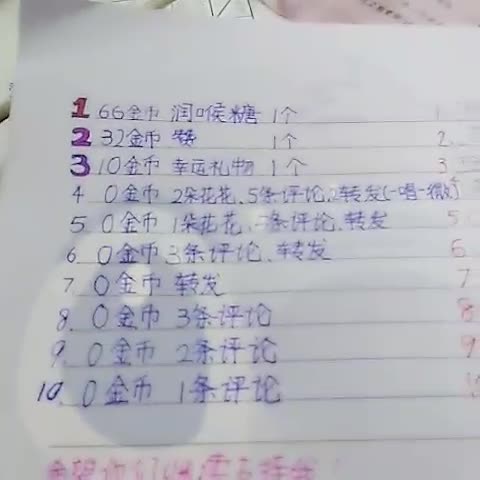 1 66金币 润喉糖 1个 1.
2 32金币 1个 2.
3 10金币 幸运礼物 1个 3
4 0金币 2朵花花、5条评论、2转发(一唱一微)
5. 0金币 1朵花花、条评论、转发 5.
6. 0金币 3条评论、转发 6
7 0金币 转发 7
8. 0金币 3条评论 8
9. 0金币 2条评论 9
10. 0金币 1条评论
希望你们